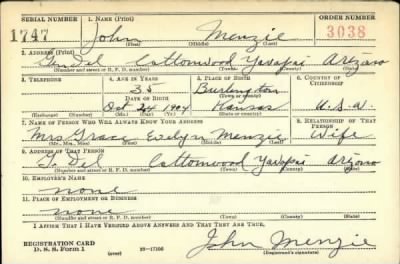 SERIAL NUMBER 1. NAME (Print) ORDER NUMBER
1747 John Menzie 3038
(First) (Middle) (Last)
2. ADDRESS (Print)
Gen Del Cottonwood Yavapai Arizona
(Number and street or R. F. D. number) (Town) (County) (State)
3. TELEPHONE 4. AGE IN YEARS 5. PLACE OF BIRTH 6. COUNTRY OF CITIZENSHIP
35 Burlington
DATE OF BIRTH (Town or county)
Oct 24 1904 Kansas U.S.A.
(Exchange) (Number) (Mo.) (Day) (Yr.) (State or country)
7. NAME OF PERSON WHO WILL ALWAYS KNOW YOUR ADDRESS 8. RELATIONSHIP OF THAT PERSON
Mrs Grace Evelyn Menzie Wife
(Mr., Mrs., Miss) (First) (Middle) (Last)
9. ADDRESS OF THAT PERSON
G. Del Cottonwood Yavapai Arizona
(Number and street or R. F. D. number) (Town) (County) (State)
10. EMPLOYER'S NAME
none
11. PLACE OF EMPLOYMENT OR BUSINESS
none
(Number and street or R. F. D. number) (Town) (County) (State)
I AFFIRM THAT I HAVE VERIFIED ABOVE ANSWERS AND THAT THEY ARE TRUE.
REGISTRATION CARD John Menzie
D. S. S. Form 1 (over) 16-17105 (Registrant's signature)